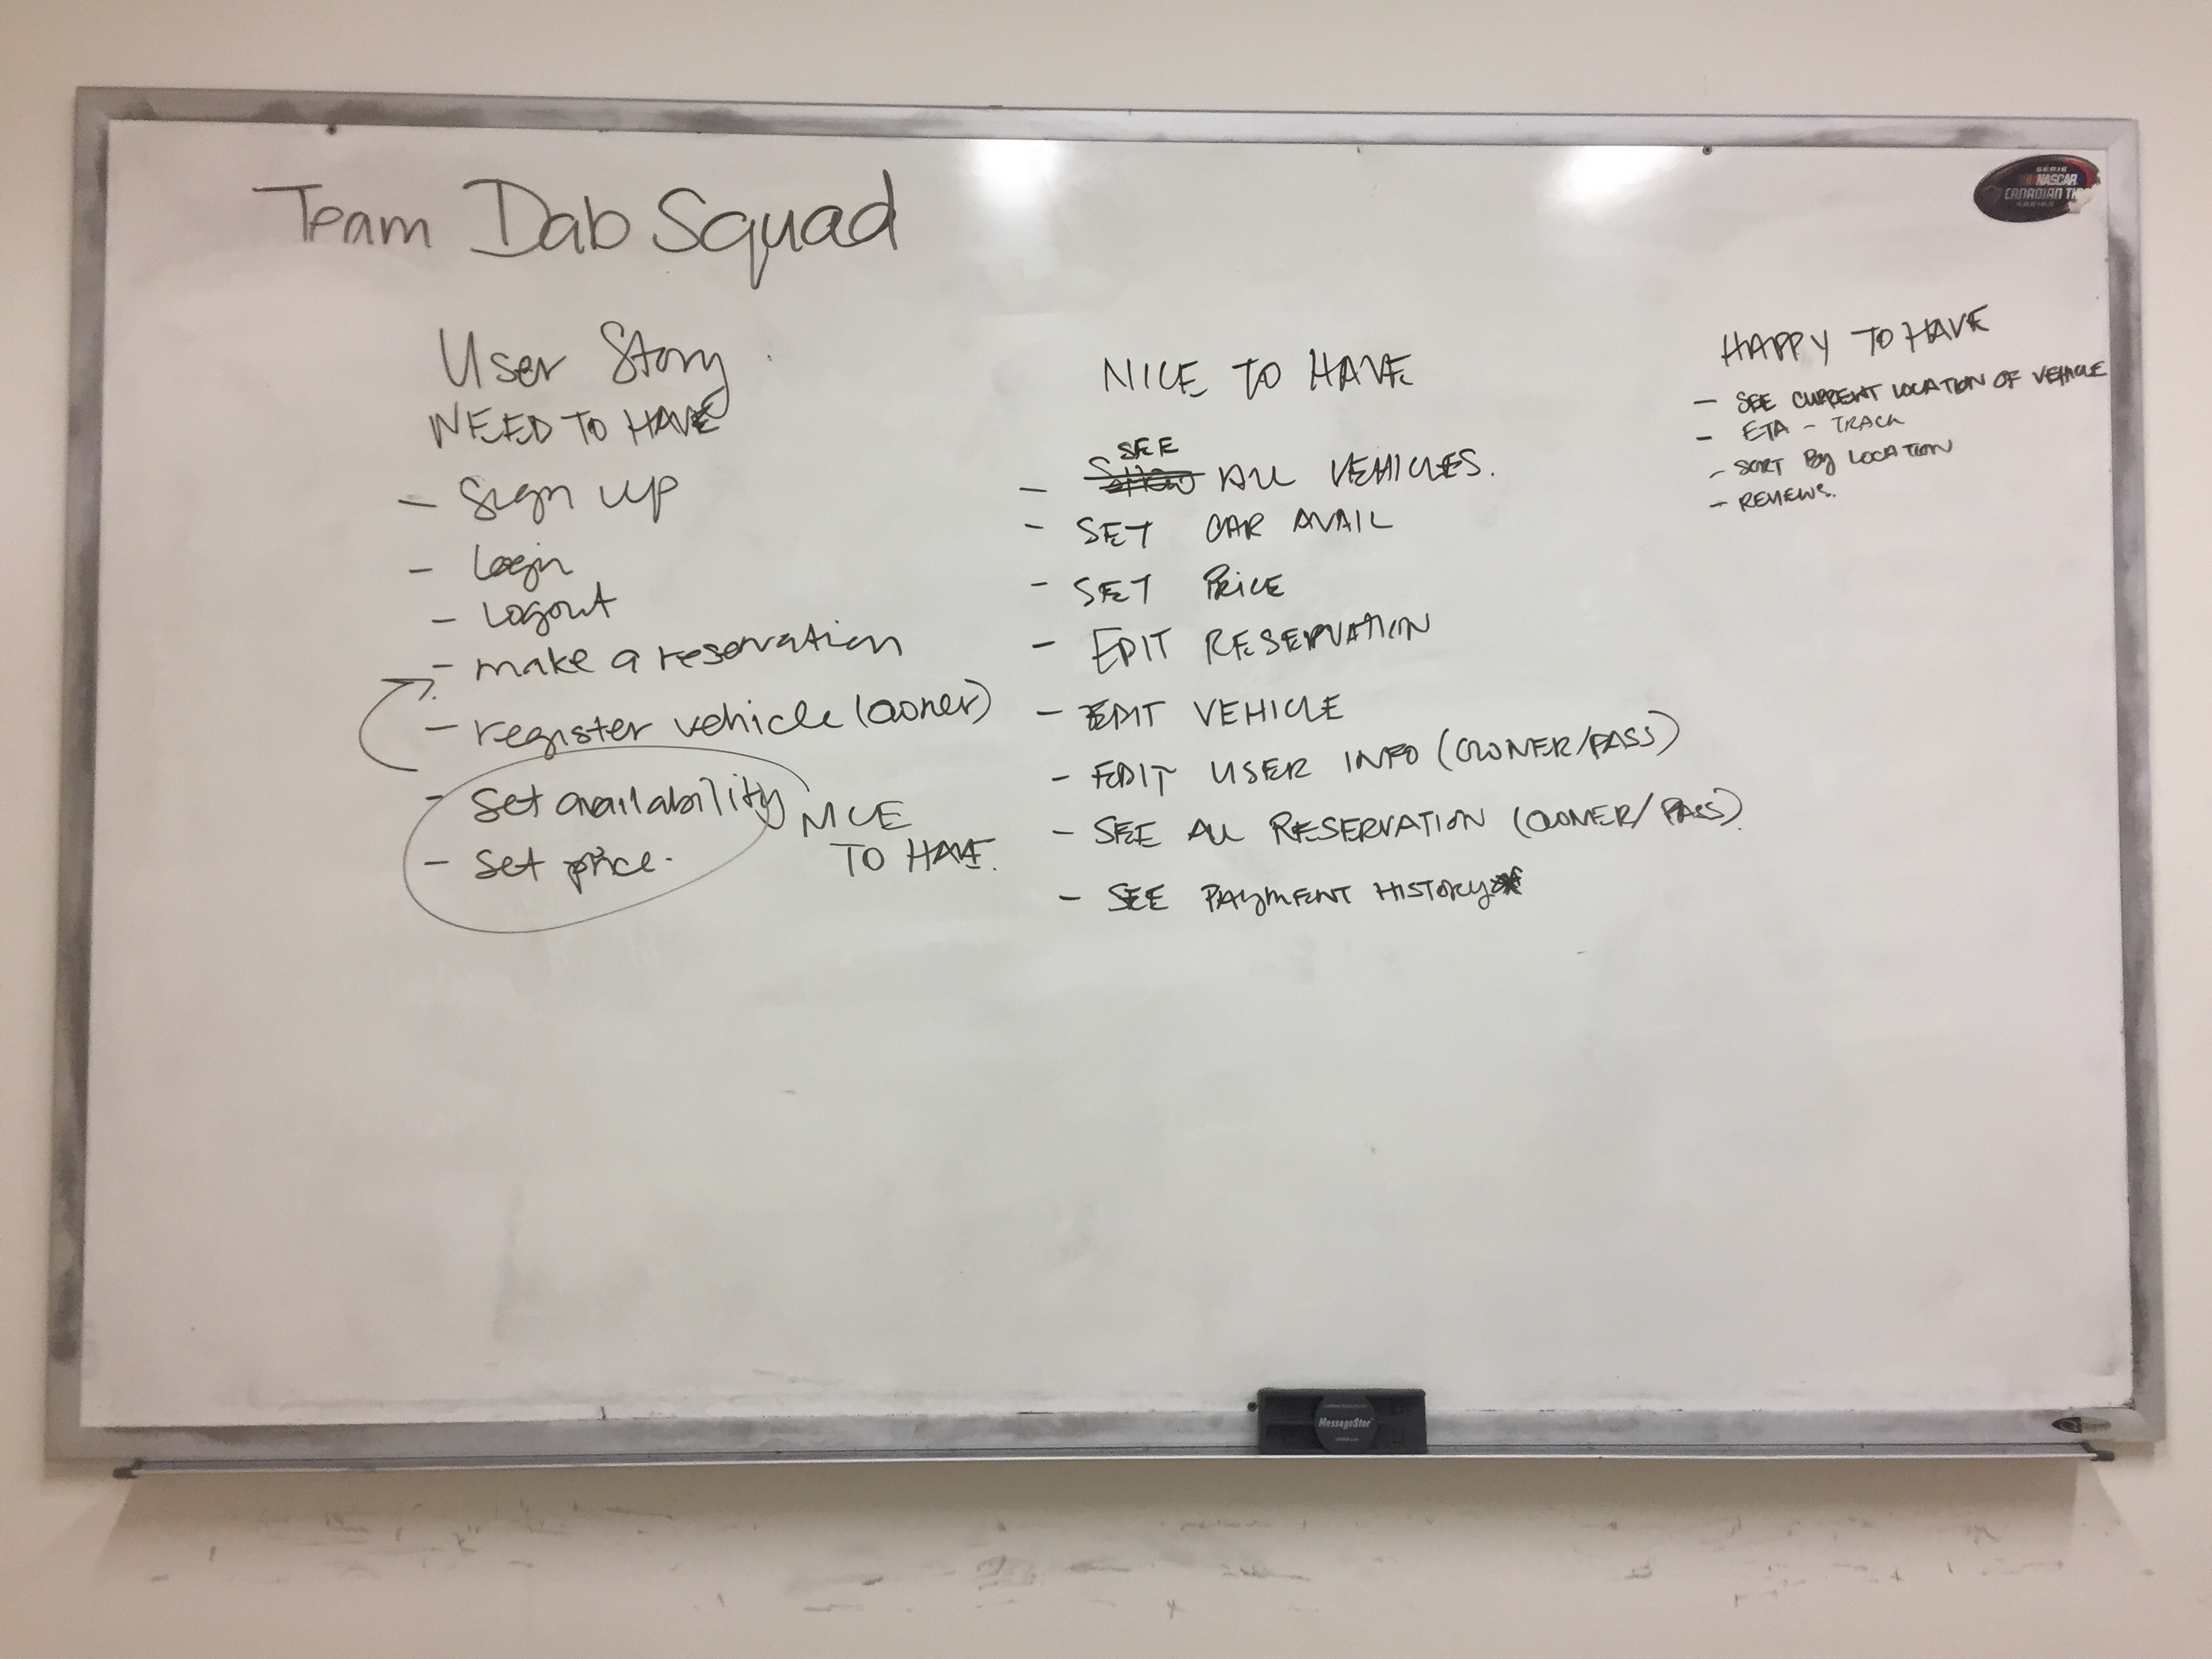 Team Dab Squad
User Story
NEED TO HAVE
- Sign up
- Login
- Logout
- make a reservation
- register vehicle (owner)
- Set availability
- Set price.
NICE
TO HAVE.
NICE TO HAVE
SEE
- Show ALL VEHICLES.
- SET CAR AVAIL
- SET PRICE
- EDIT RESERVATION
- EDIT VEHICLE
- EDIT USER INFO (OWNER/PASS)
- SEE ALL RESERVATION (OWNER/PASS)
- SEE PAYMENT HISTORY*
HAPPY TO HAVE
- SEE CURRENT LOCATION OF VEHICLE
- ETA - TRACK
- SORT BY LOCATION
- REVIEWS.
SÉRIE
NASCAR
CANADIAN
SERIES
MessageStor